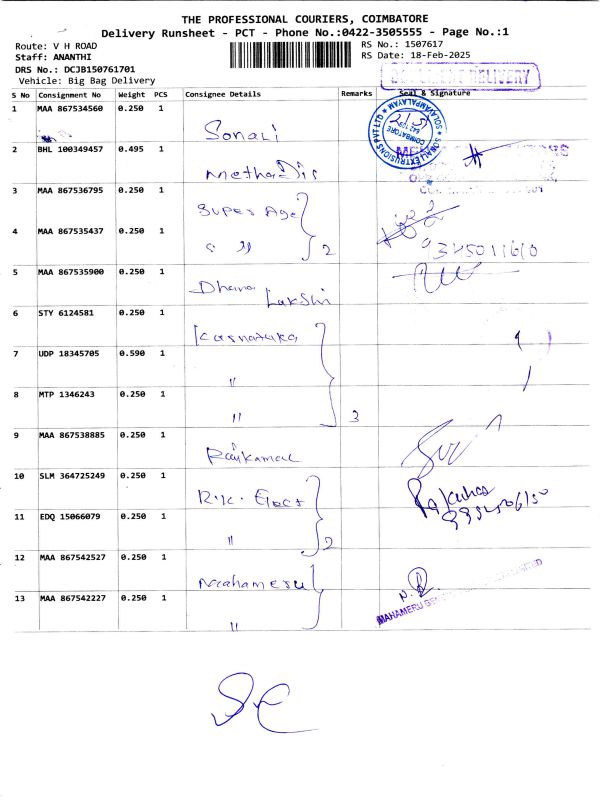 THE PROFESSIONAL COURIERS, COIMBATORE
Delivery Runsheet - PCT - Phone No.:0422-3505555 - Page No.:1
Route: V H ROAD
RS No.: 1507617
Staff: ANANTHI
RS Date: 18-Feb-2025
DRS No.: DCJB150761701
Vehicle: Big Bag Delivery
DELIVERY
S No Consignment No Weight PCS Consignee Details Remarks Seal & Signature
1 MAA 867534560 0.250 1 Sonali
SONALI EXTRUSIONS PVT LTD ★ SOLAVAMPALAYAM ★
COIMBATORE
2 BHL 100349457 0.495 1
3 MAA 867536795 0.250 1 Super Age
4 MAA 867535437 0.250 1 " " 2
5 MAA 867535900 0.250 1 Dhana Lakshi
6 STY 6124581 0.250 1 Karnataka
7 UDP 18345705 0.590 1 "
8 MTP 1346243 0.250 1 " 3
9 MAA 867538885 0.250 1 Rajkamal
10 SLM 364725249 0.250 1 R.K.
11 EDQ 15066079 0.250 1 " 2
12 MAA 867542527 0.250 1 Mahameru
13 MAA 867542227 0.250 1 "
MAHAMERU LIMITED